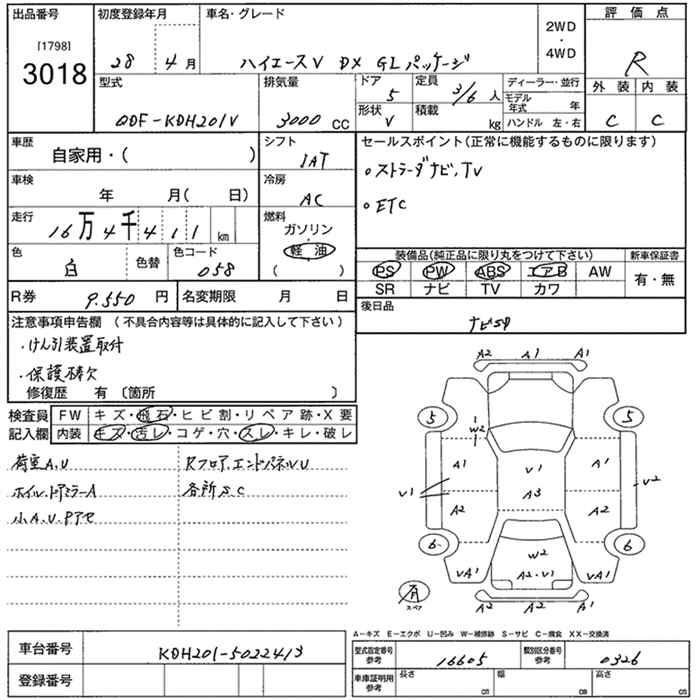 出品番号 初度登録年月 車名・グレード 評価点
[1798] 2WD・4WD
3018 28年 4月 ハイエースV DX GLパッケージ R
型式 排気量 ドア 5 定員 3/6人 ディーラー・並行 外装 内装
QDF-KDH201V 3000 CC 形状 V 積載 kg モデル年式 年 C C
ハンドル 左・右
車歴 自家用・( ) シフト IAT セールスポイント(正常に機能するものに限ります)
車検 年 月( 日) 冷房 AC 。ストラーダナビ、TV
走行 16万4千411 km 燃料 ガソリン 軽油 ( ) 。ETC
色 白 色替 色コード 058 装備品(純正品に限り丸をつけて下さい) 新車保証書
PS PW ABS エアB AW 有・無
SR ナビ TV カワ
R券 9.550円 名変期限 月 日 後日品
注意事項申告欄 (不具合内容等は具体的に記入して下さい)
・けん引装置取付
・保護磚欠
修復歴 有 〔箇所 〕
検査員記入欄 FW キズ・飛石・ヒビ割・リペア跡・X要
内装 キズ・汚レ・コゲ・穴・スレ・キレ・破レ
荷室A.U Rフロア.エンドパネルU
ホイル.ドアミラーA 各所SC
小A.U.Pアセ
A2 A1 A1
5 W2 5
A1 V1 A1
V1 A3 V2
A2 A2
6 W2 6
VA1 A2・V1 VA1
有 スペア A2 A2 A2
A-キズ E-エクボ U-凹み W-補修跡 S-サビ C-腐食 XX-交換済
車台番号 KDH201-5022413 型式指定番号 参考 16605 類別区分番号 参考 0326
登録番号 車庫証明用参考 長さ cm 幅 cm 高さ cm